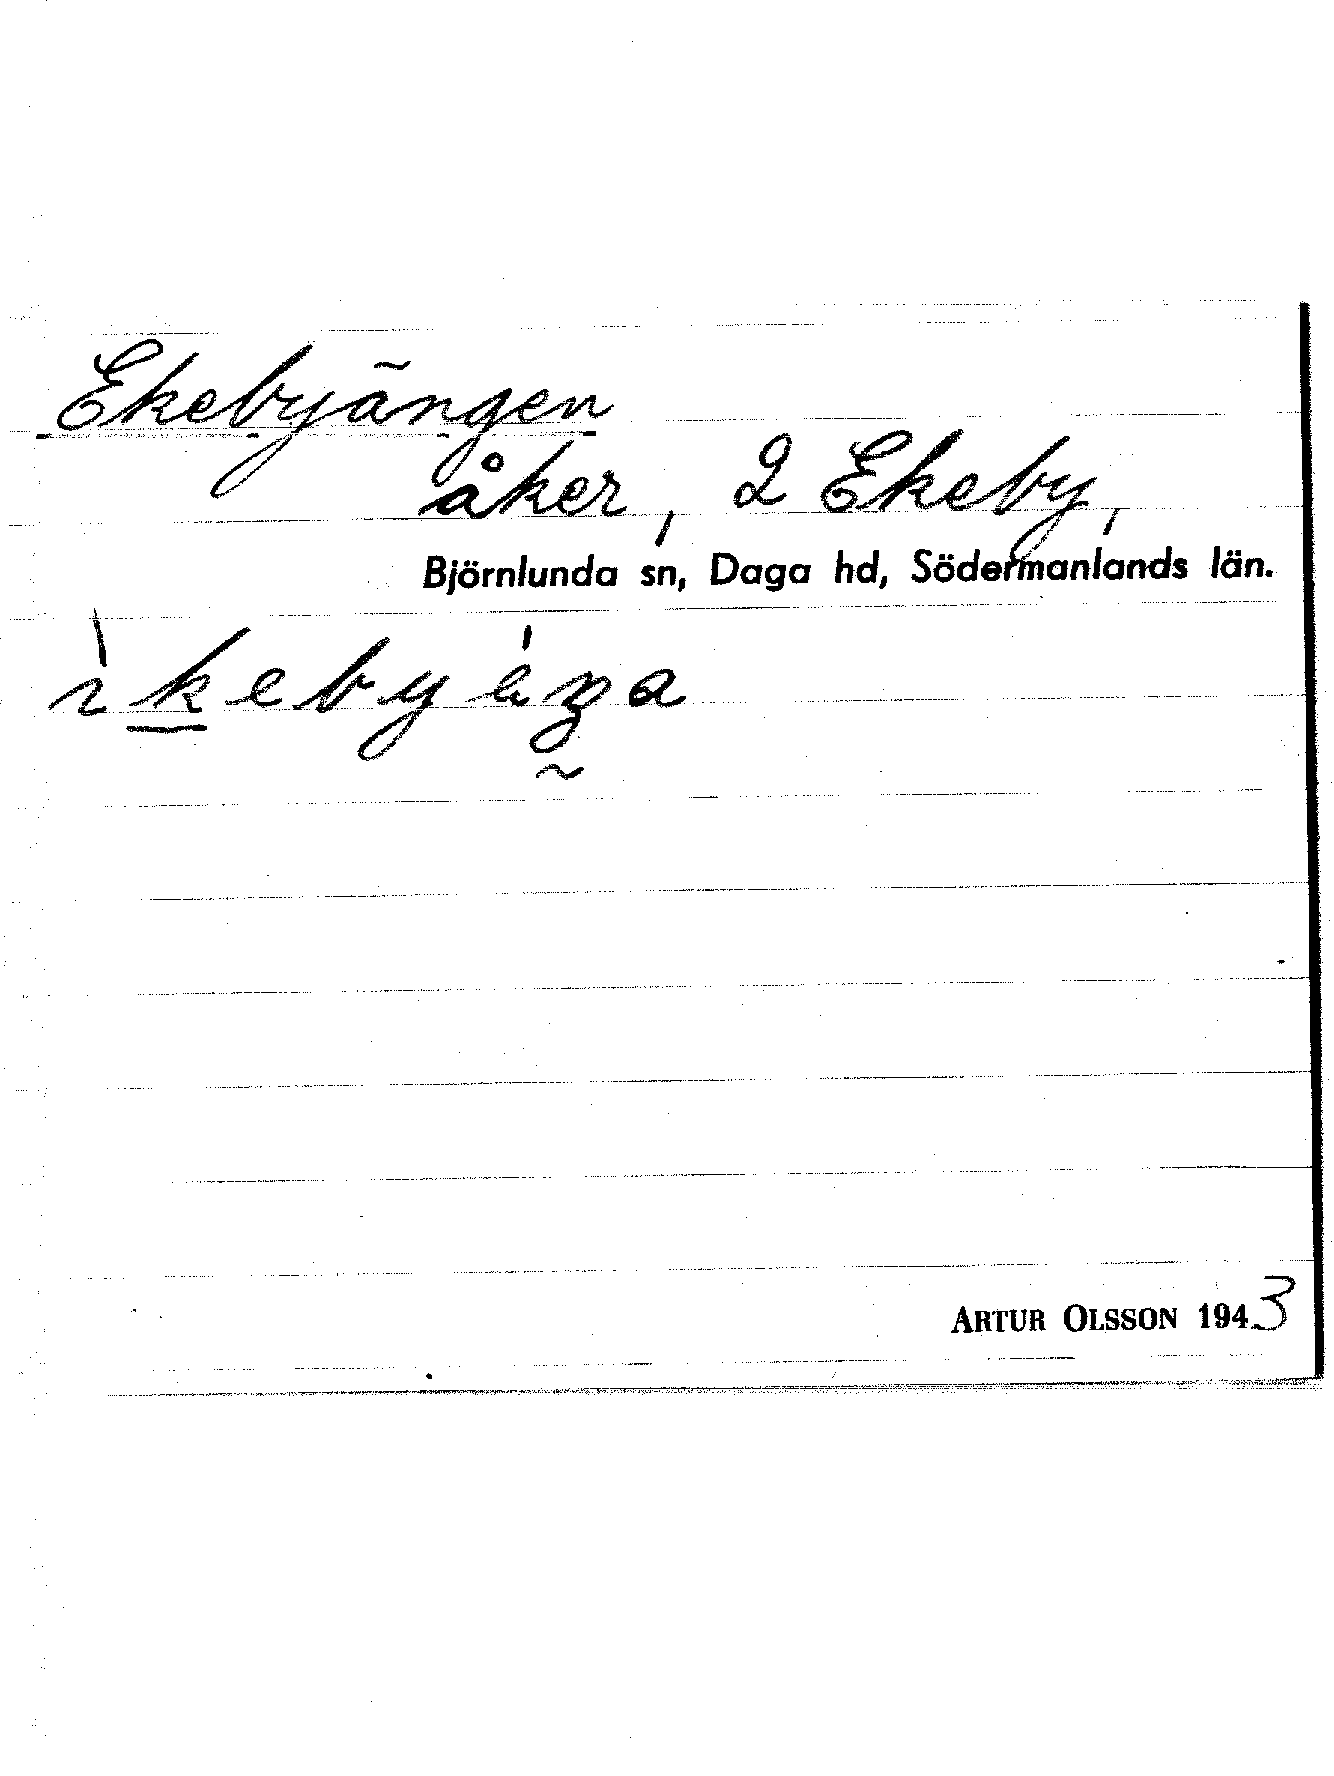 Ekebyängen
åker, 2 Ekeby,
Björnlunda sn, Daga hd, Södermanlands län.
ARTUR OLSSON 1943